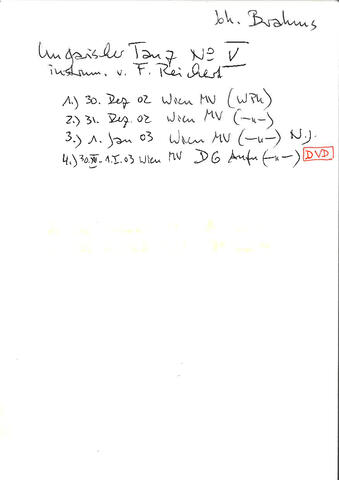 Joh. Brahms
Ungarischer Tanz No V
instrum. v. F. Reichert
1.) 30. Dez 02 Wien MV (WPh)
2.) 31. Dez. 02 Wien MV (—"—)
3.) 1. Jan 03 Wien MV (—"—) N.J.
4.) 30.XII.-1.I.03 Wien MV DG Aufn (—"—) DVD